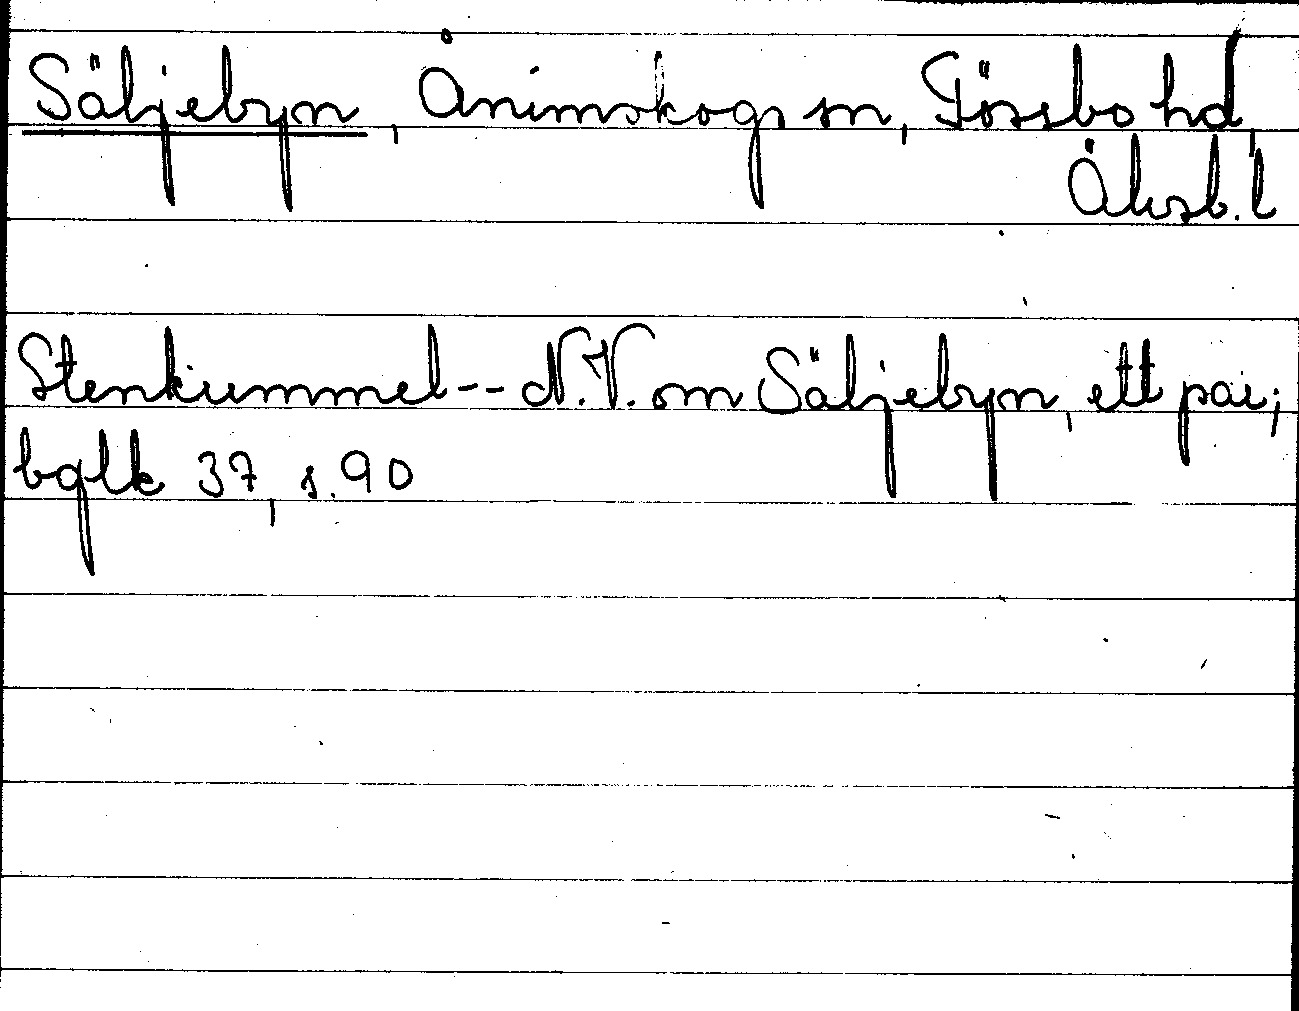 Säljebyn, Ånimskogs sn, Tössbo hd,
Älvsb. l
Stenkummel -- N.V. om Säljebyn, ett par;
bglk 37, s. 90